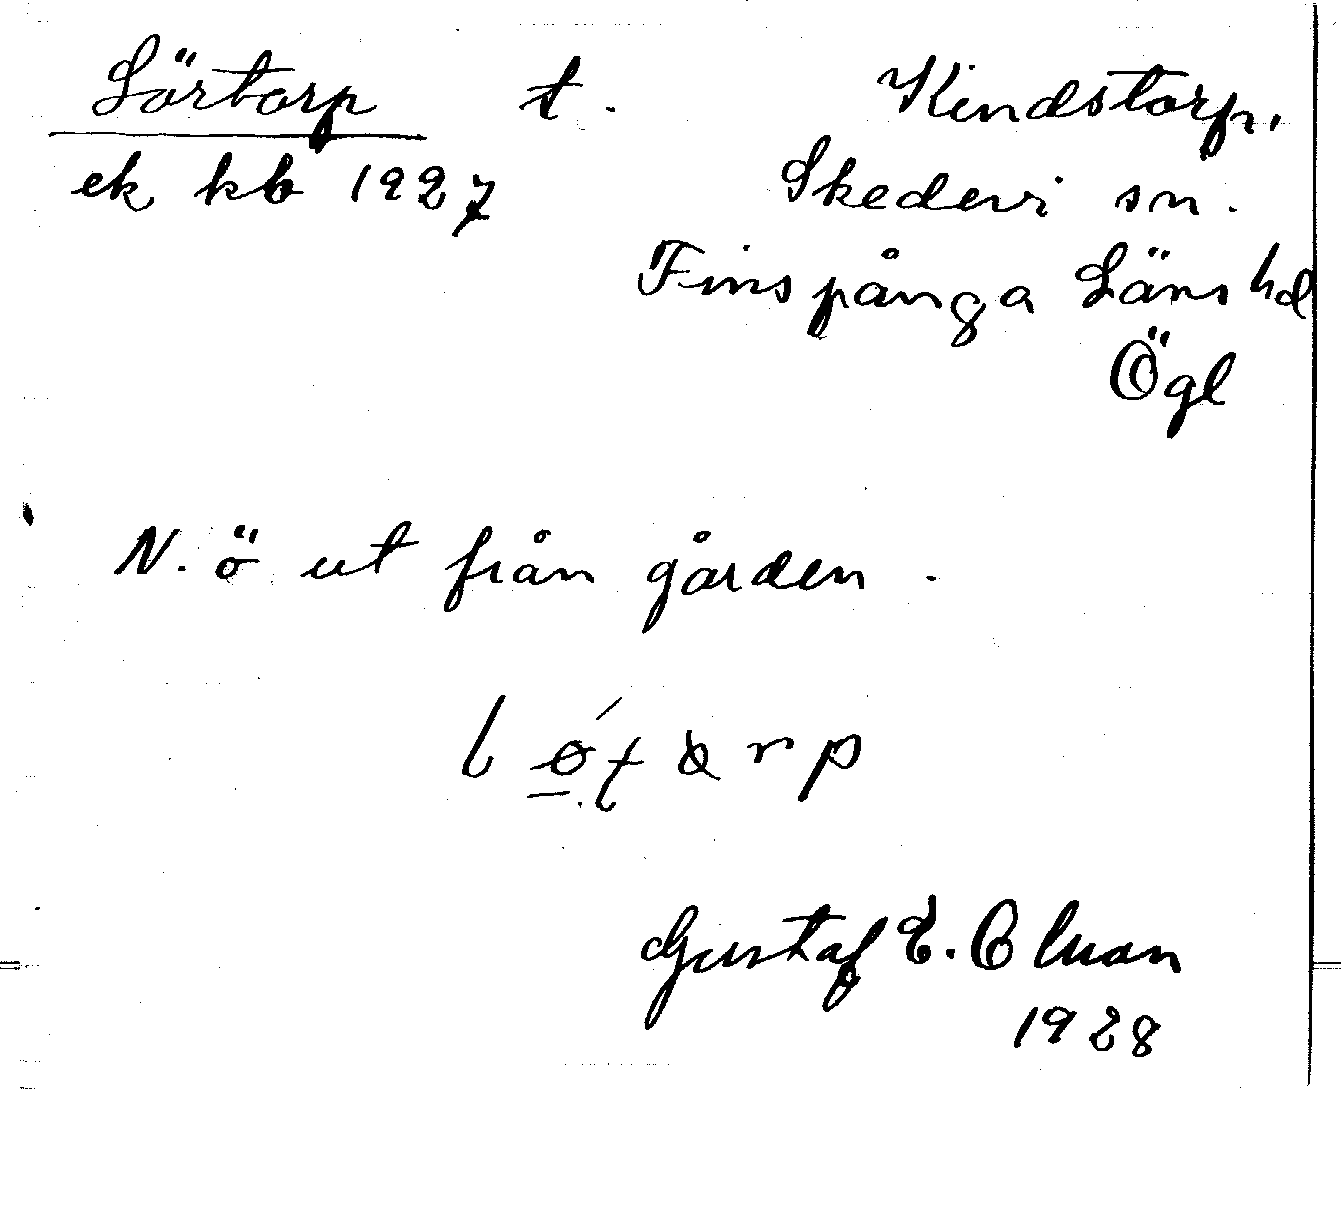 Lörtorp t. Kindstorp,
ek kb 1927 Skedevi sn.
Finspånga Läns hd
Ögl
N. ö ut från gården.
Gustaf E. Olman
1928